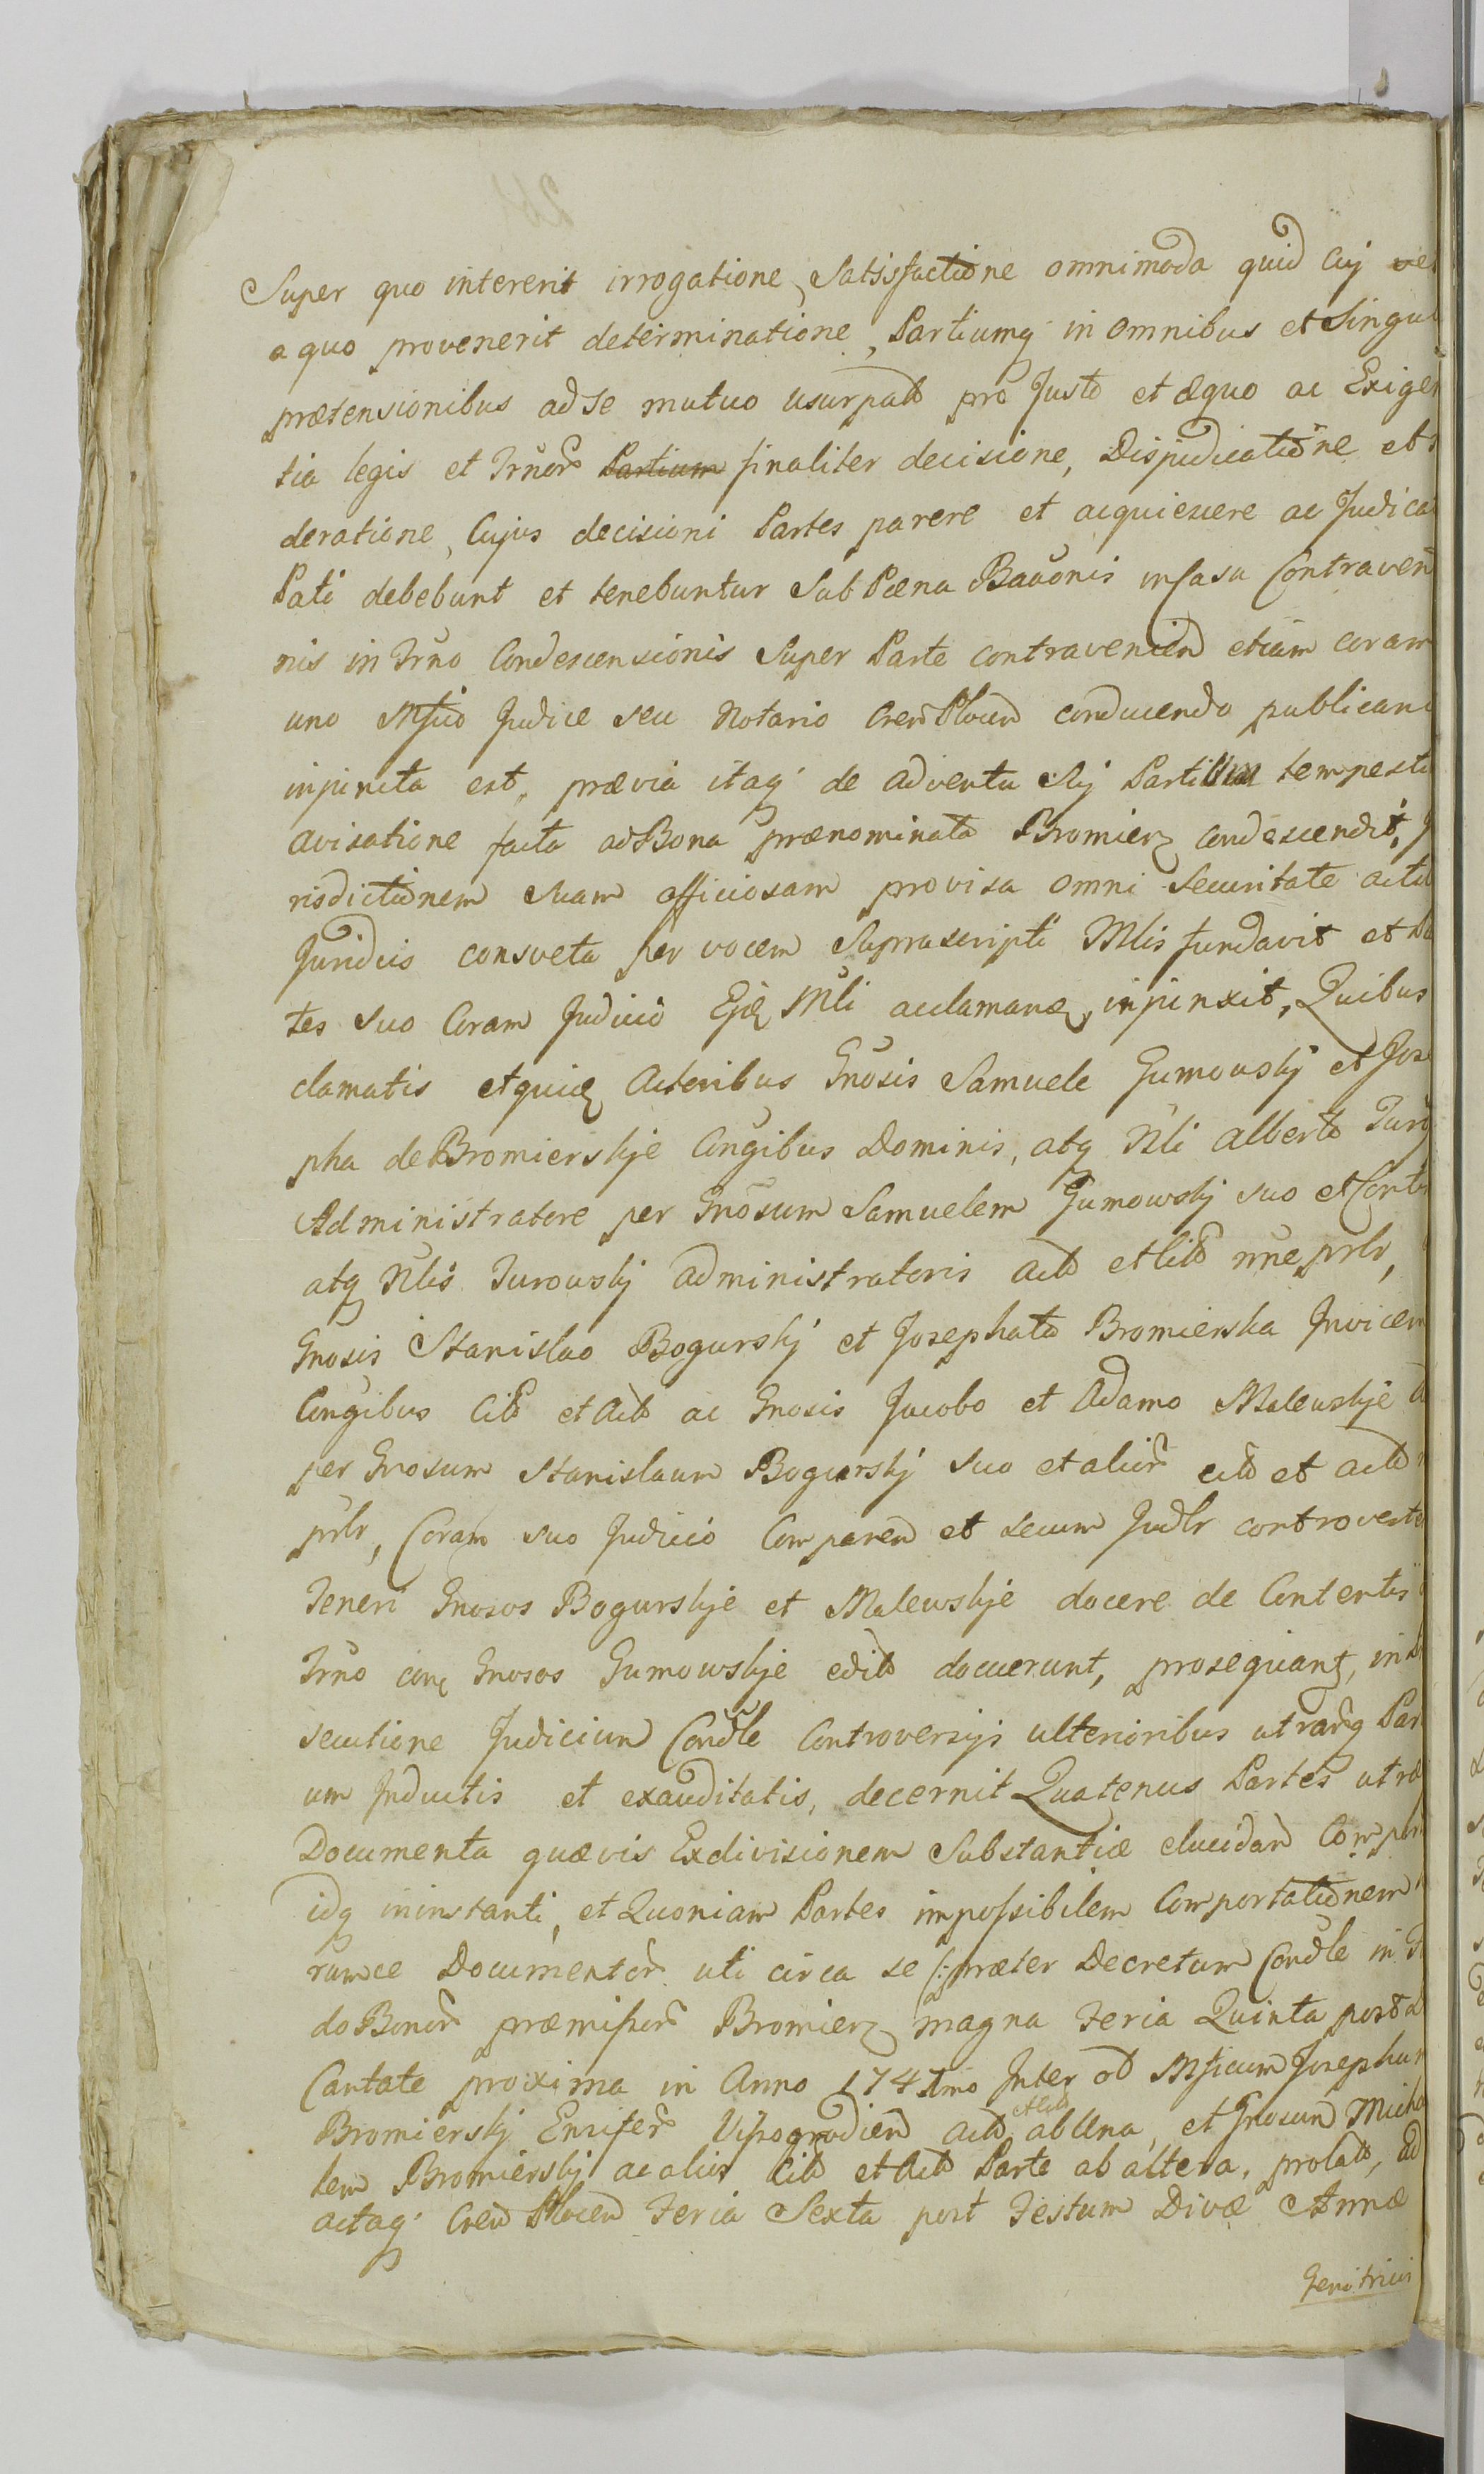 Super quo intererit irrogatione, Satisfactione omnimoda quid Cuj vel
a quo provenerit determinatione, Partiumq in omnibus et Singul
prætensionibus ad se mutuo usurpatt pro Justo et æquo ac Exigen
tia legis et Trnor̃ Partium finaliter decisione, Disjudicatione et
deratione, Cujus decisioni Partes parere et acquiescere ac Judica
Pati debebunt et tenebuntur Sub Pæna Bañonis in Casu Contraven
nis in Trño Condescensionis Super Parte contraveniend etiam coram
uno Mfico Judice seu Notario Cren Plocen conducendo publican
injuncta est, prævia itaq de adventu Sij Partium tempesti
avisatione facta ad Bona prænominata Bromierz condescendit, J
risdictionem suam officiosam provisa omni Securitate actib
Juridicis consveta per vocem Suprascripti Mlis fundavit et Pa
tes suo Coram Judicio Ejq Mli acclamanq, injunxit, Quibus
clamatis etquiq Actoribus Gñosis Samuele Gumowskj et Jose
pha de Bromierskje Coñgibus Dominis, atq Nli Alberto Turo
Administratore per Gñosum Samuelem Gumowskj suo et Cont
atq Nlis Turowskj administratoris actt et citt nne prlr,
Gnosis Stanislao Bogurskj et Josephatt Bromierska Invicem
Congibus Citt et Actt ac Gnosis Jacobo et Adamo Malewskje
per Gnosum Stanislaum Bogurskj suo et alior̃ citt et actt
prlr, Coram suo Judicio Comparen et secum Judlr controverte
Teneri Gnosos Bogurskje et Malewskje docere de Contentis
Trño conq Gnosos Gumowskje editt docuerunt, prosequianq, in
secutione Judicium Condle Controversijs ulterioribus utrarq Par
um Inductis et exauditatis, decernit Quatenus Partes utræ
Documenta quævis Exdivisionem Substantiæ elucidan Compor
idq in instanti, et Quoniam Partes impossibilem Comportationem
rumce Documentor̃ uti circa se /: præter Decretum Condle in
do Bonor̃ præmissor̃ Bromierz magna Feria Quinta post
Cantate proxima in Anno 1747mo Inter oô Mficum Josephum
Bromierskj Ensifer̃ Vissogrodien Actt et Citt ab Una, et Gnosum Micha
lem Bromierskj ac alios Citt et Actt Parte ab altera, prolatt, ad
actaq Cren Plocen Feria Sexta post Festum Divæ Annæ
Genitrici